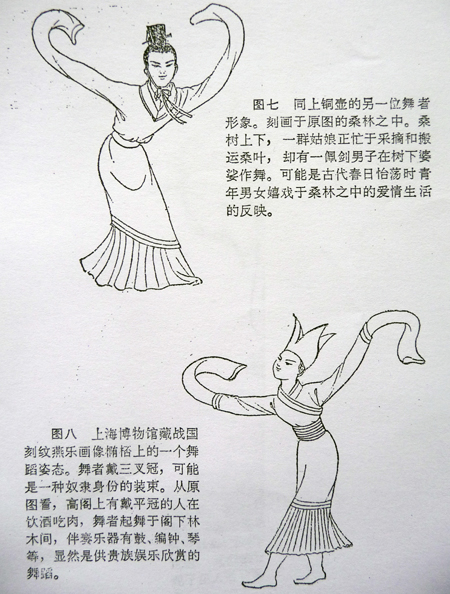 图七　同上铜壶的另一位舞者
形象。刻画于原图的桑林之中。桑
树上下，一群姑娘正忙于采摘和搬
运桑叶，却有一佩剑男子在树下婆
娑作舞。可能是古代春日怡荡时青
年男女嬉戏于桑林之中的爱情生活
的反映。
图八　上海博物馆藏战国
刻纹燕乐画像椭桮上的一个舞
蹈姿态。舞者戴三叉冠，可能
是一种奴隶身份的装束。从原
图看，高阁上有戴平冠的人在
饮酒吃肉，舞者起舞于阁下林
木间，伴奏乐器有鼓、编钟、琴
等，显然是供贵族娱乐欣赏的
舞蹈。